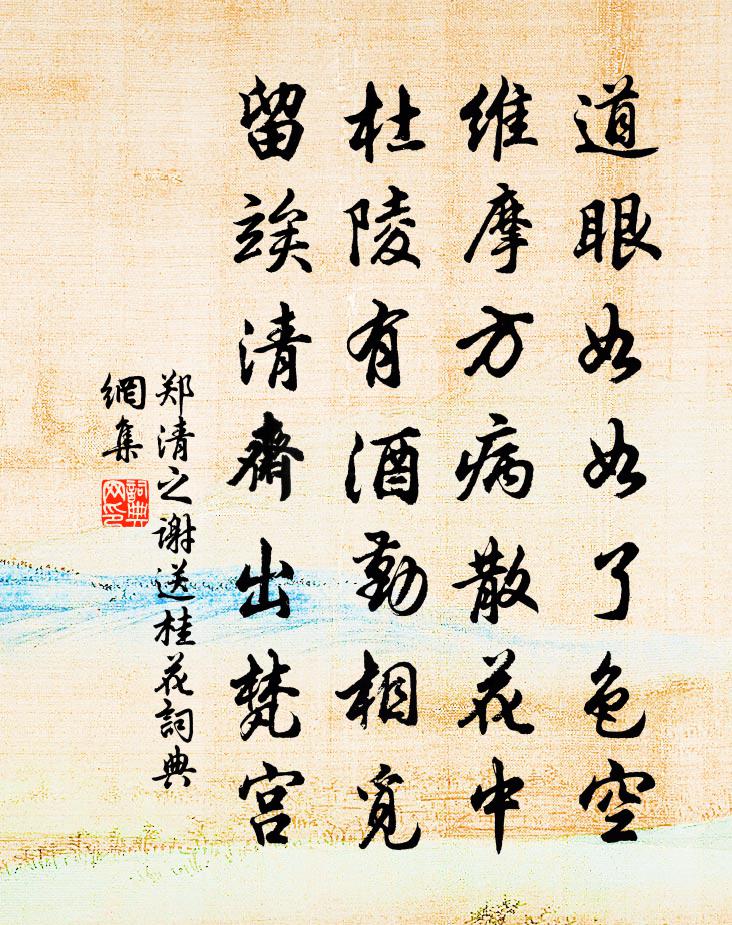 道眼如如了色空
維摩方病散花中
杜陵有酒勤相覓
留誒清齋出梵宫
郑清之谢送桂花詞典
網集
詞典
网印